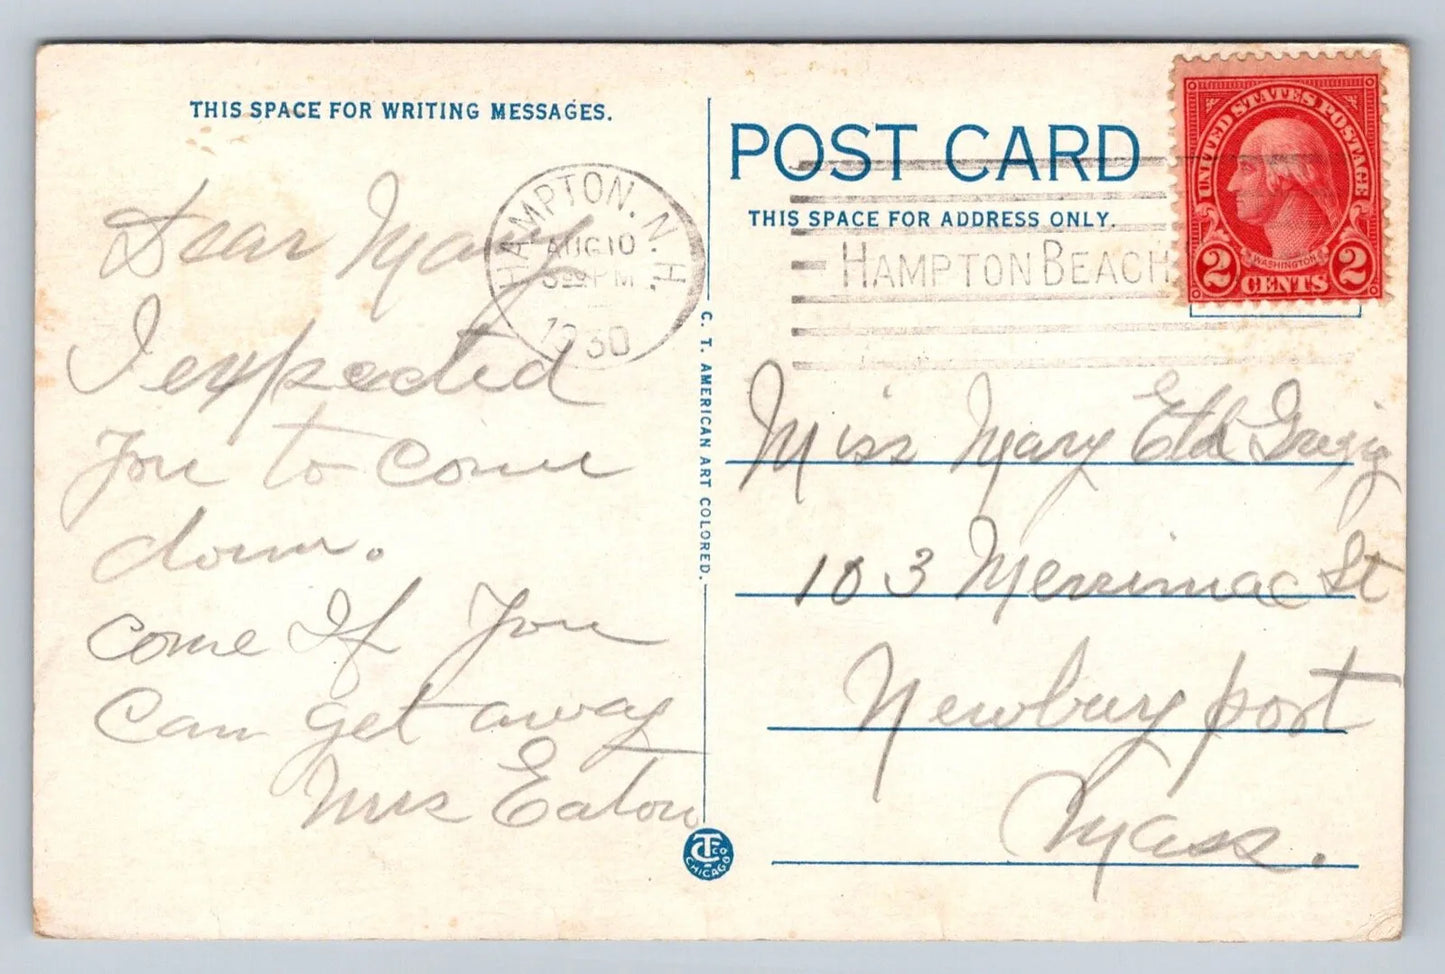 THIS SPACE FOR WRITING MESSAGES.
Dear Mary
I expected
you to come
down.
come If you
can get away
Mrs Eaton
HAMPTON. N.H.
AUG 10
PM
1930
C. T. AMERICAN ART COLORED.
CTCO
CHICAGO
POST CARD
THIS SPACE FOR ADDRESS ONLY.
HAMPTON BEACH
UNITED STATES POSTAGE
WASHINGTON
2 CENTS 2
Miss Mary
103 Merrimac St
Newburyport
Mass.